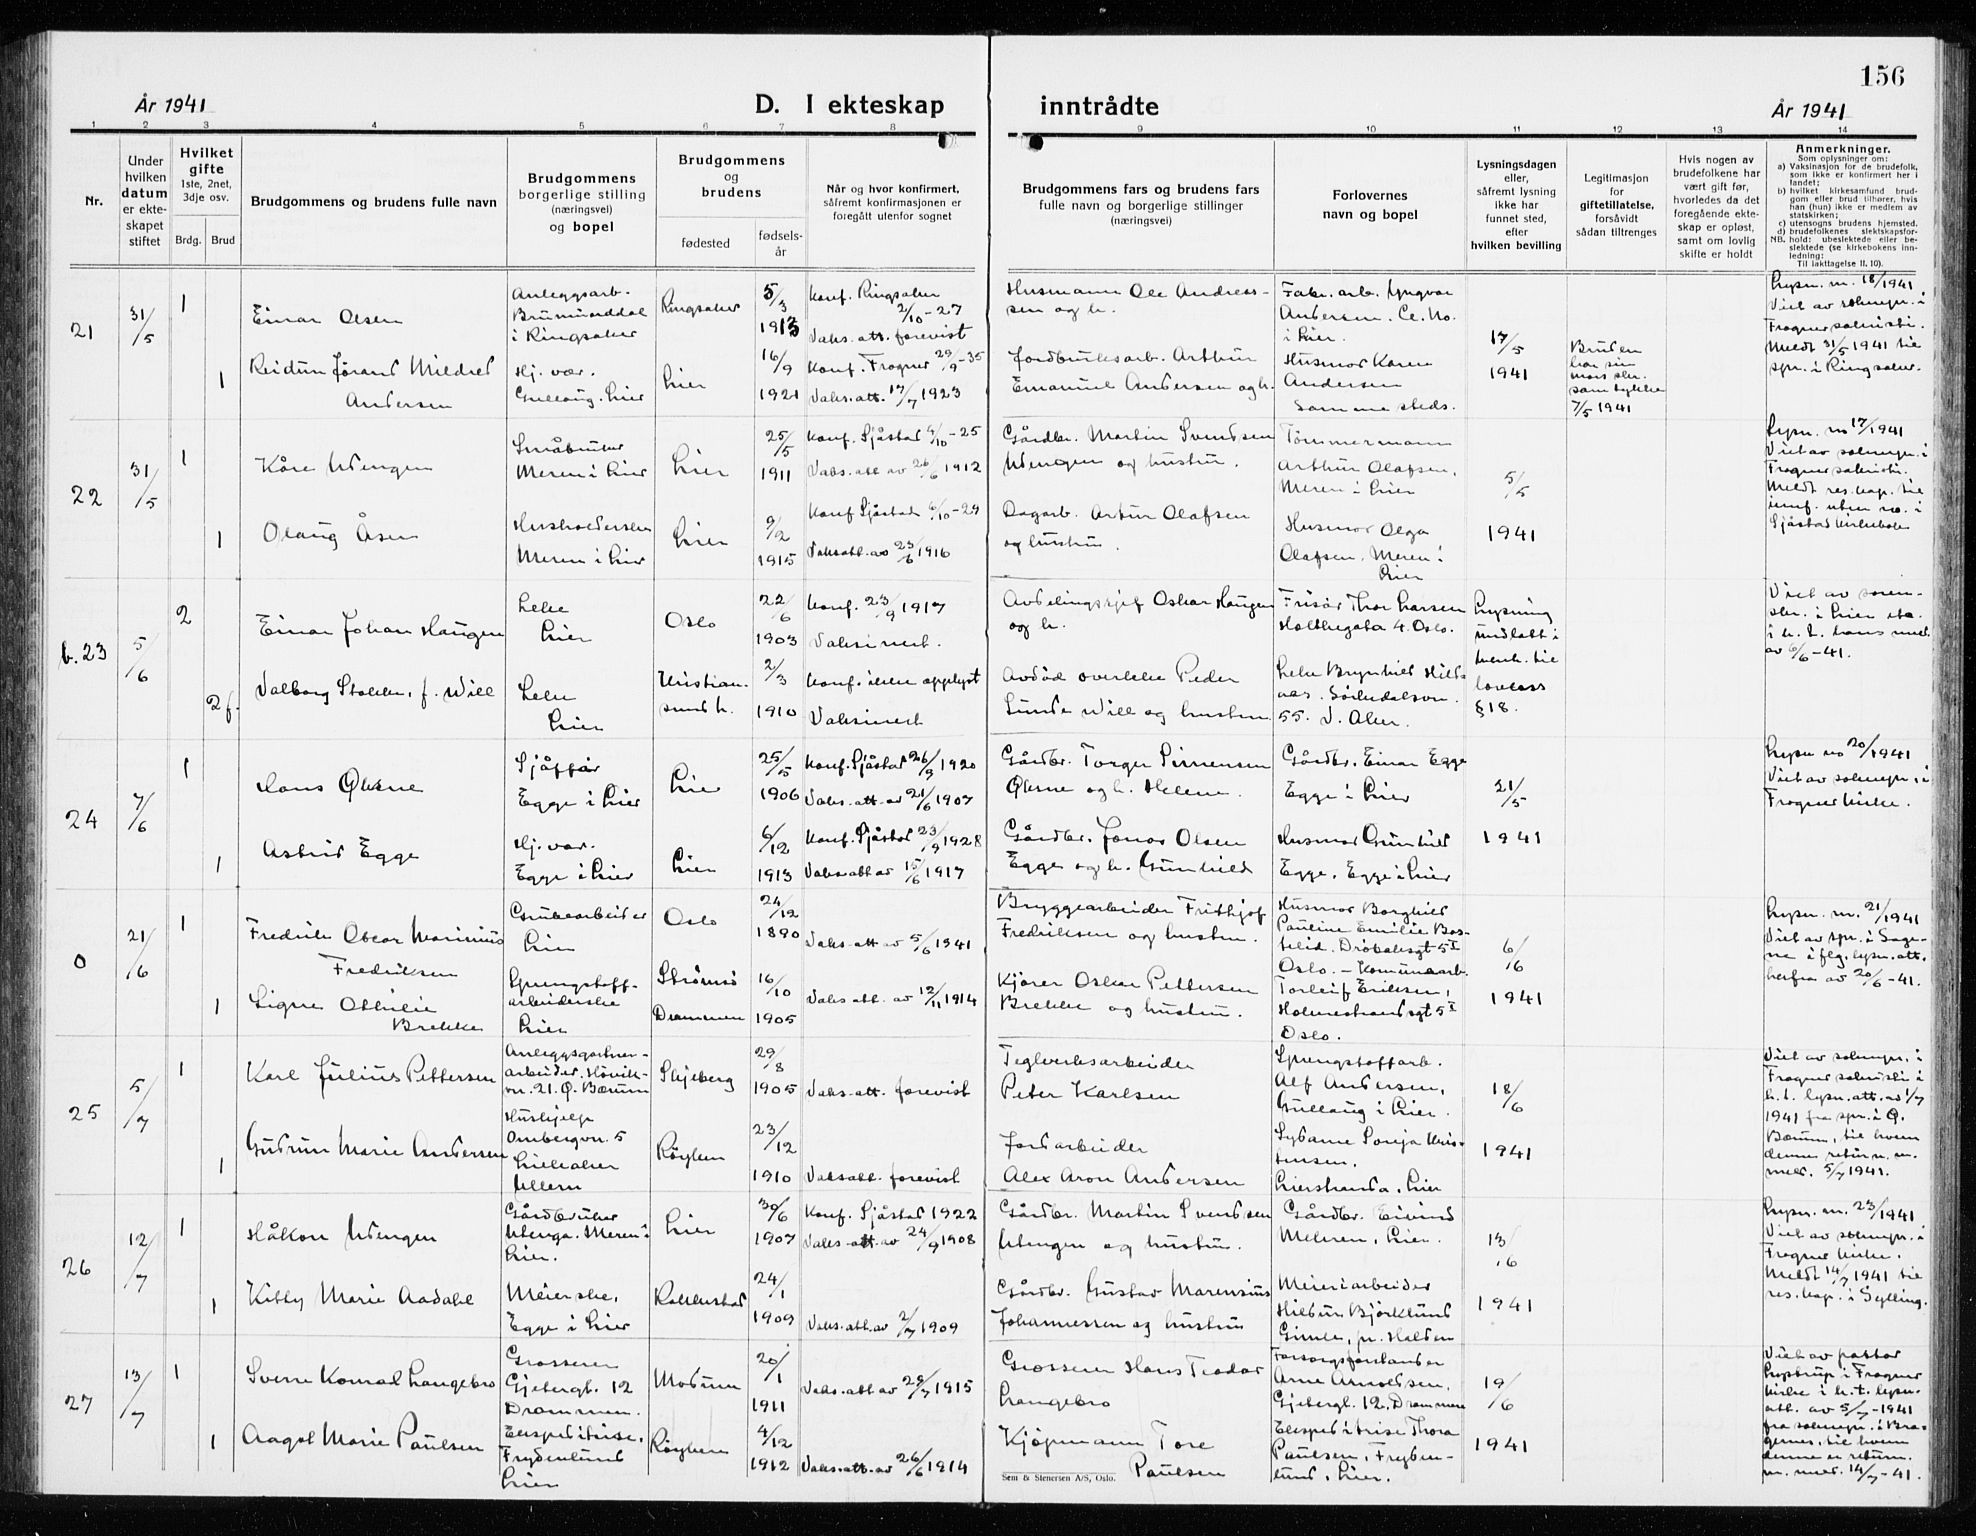 156
År 1941
D. I ekteskap inntrådte
År 1941
1 2 3 4 5 6 7 8 9 10 11 12 13 14
Nr.
Under hvilken datum er ekteskapet stiftet
Hvilket gifte
1ste, 2net, 3dje osv.
Brdg. Brud
Brudgommens og brudens fulle navn
Brudgommens borgerlige stilling (næringsvei) og bopel
Brudgommens og brudens
fødested
fødselsår
Når og hvor konfirmert, såfremt konfirmasjonen er foregått utenfor sognet
Brudgommens fars og brudens fars fulle navn og borgerlige stillinger (næringsvei)
Forlovernes navn og bopel
Lysningsdagen eller, såfremt lysning ikke har funnet sted, efter hvilken bevilling
Legitimasjon for giftetillatelse, forsåvidt sådan tiltrenges
Hvis nogen av brudefolkene har vært gift før, hvorledes da det foregående ekteskap er opløst, samt om lovlig skifte er holdt
Anmerkninger.
Som oplysninger om:
a) Vaksinasjon for de brudefolk, som ikke er konfirmert her i landet;
b) hvilket kirkesamfund brudgom eller brud tilhører, hvis han (hun) ikke er medlem av statskirken;
c) utensogns brudens hjemsted.
d) brudefolkenes slektskapsforhold: ubeslektede eller beslektede (se kirkebokens innledning: Til iakttagelse II. 10).
NB.
21
31/5
1
Einar Olsen
Anleggsarb.
Brumunddal
i Ringsaker
Ringsaker
5/3
1913
Konf. Ringsaker
2/10-27
Vaks. att. forevist
Husmann Ole Andreas-
sen og h.
Fabr. arb. Yngvar
Andersen. Ce. No.
i Lier.
17/5
1941
Bruden
har sin
mors skr.
samtykke
7/5 1941
Lysn. nr. 18/1941
Viet av soknepr. i
Frogner sakristi.
Meldt 31/5 1941 til
spr. i Ringsaker.
1
Reidun Jørand Mildred
Andersen
Hj. vær.
Gullaug. Lier
Lier
16/9
1921
Konf. Frogner 29/9-35
Vaks. att. 17/7 1923
Jordbruksarb. Arthur
Emanuel Andersen og h.
Husmor Karen
Andersen
Samme steds.
22
31/5
1
Kåre Wengen
Småbruker
Meren i Lier
Lier
25/5
1911
Konf. Sjåstad 4/10-25
Vaks. att av 26/6 1912
Gårdbr. Martin Svendsen
Wengen og hustru.
Tømmermann
Arthur Olafsen,
Meren i Lier
5/5
1941
Lysn. no 17/1941
Viet av soknepr. i
Frogner sakristi.
Meldt res. kap. til
innf. uten no. i
Sjåstad kirkebok
1
Olaug Åsen
Husholderske
Meren i Lier
Lier
9/2
1915
Konf Sjåstad 6/10-29
Vaksatt. av 23/6 1916
Dagarb. Artur Olafsen
og hustru.
Husmor Olga
Olafsen. Meren i
Lier
b. 23
5/6
2
Einar Johan Haugen
Lege
Lier
Oslo
22/6
1903
Konf. 23/9 1917
Vaksinert.
Avdelingssjef Oskar Haugen
og h.
Frisør Thor Larsen
Holtegata 4. Oslo.
Lysning
undlatt i
henh. til
lovens
§ 18.
Viet av soren-
skr. i Lier etc.
i h. t. hans med.
av 6/6-41.
2 f.
Valborg Stokke, f. Will
Lege
Lier
Kristian-
sund N.
2/3
1910
Konf. ikke opplyst
Vaksinert
Avdød overlege Peder
Lunde Will og hustru
Lege Brynhild Hild-
aas. Sørkedalsvn.
55. V. Aker.
24
7/6
1
Hans Øksne
Sjåffør
Egge i Lier
Lier
25/5
1906
Konf. Sjåstad 26/9 1920
Vaks. att. av 21/6 1907
Gårdbr. Torger Simensen
Øksne og h. Helene.
Gårdbr. Einar Egge
Egge i Lier
21/5
1941
Lysn no 20/1941
Viet av soknepr. i
Frogner kirke.
1
Astrid Egge
Hj. vær.
Egge i Lier
Lier
6/12
1913
Konf. Sjåstad 23/9 1928
Vaks. att av 15/6 1917
Gårdbr. Jonas Olsen
Egge og h. Gunhild
Husmor Gunhild
Egge, Egge i Lier
0
21/6
1
Fredrik Oscar Marinius
Fredriksen
Grubearbeider
Lier
Oslo
24/12
1890
Vaks. att av 5/6 1941
Bryggearbeider Frithjof
Fredriksen og hustru.
Husmor Borghild
Pauline Emilie Bos-
helid. Drøbaksgt 5 I
Oslo. - Komunearb.
6/6
1941
Lysn. nr. 21/1941
Viet av spr. i Sage-
ne i flg. lysn. att.
herfra av 20/6-41.
1
Signe Othilie
Brekke
Sprengstoff-
arbeiderske
Lier
Strømsø
Drammen
16/10
1905
Vaks att. av 12/11 1914
Kjører Oskar Pettersen
Brekke og hustru.
Torleif Eriksen,
Holmestrandsgt 5 I
Oslo.
25
5/7
1
Karl Julius Pettersen
Anleggsgartner-
arbeider. Høvik-
vn. 21. Ø. Bærum
Skjeberg
29/8
1905
Vaks. att. forevist
Teglverksarbeider
Peter Karlsen
Sprengstoffarb.
Alf Andersen,
Gullaug i Lier.
18/6
1941
Viet av soknepr. i
Frogner sakristi i
h. t. lysn. att. av 1/7
1941 fra spr. i Ø.
Bærum, til hvem
denne return. m.
meld. 5/7 1941.
1
Gudrun Marie Andersen
Hushjelp
Ombergvn. 5
Lilleaker
Ullern
Røyken
23/12
1910
Vaksatt. forevist
Jordarbeider
Alex Aron Andersen
Sydame Sonja Kris-
tensen.
Lierstranda, Lier
26
12/7
1
Håkon Wengen
Gårdbruker
Wenga. Meren i
Lier.
Lier
30/6
1907
Konf. Sjåstad 1922
Vaks. att. av 24/9 1908
Gårdbr. Martin Svendsen
Wengen og hustru.
Gårdbr. Eivind
Mehren, Lier.
13/6
1941
Lysn. nr. 23/1941
Viet av soknepr. i
Frogner kirke.
Meldt 14/7 1941 til
res. kap. i Sylling.
1
Kitty Marie Aadahl
Meierske,
Egge i Lier
Rakkestad
24/1
1909
Vaks. att. av 2/7 1909
Gårdbr. Gustav Marensius
Johannessen og hustru
Meieriarbeider
Hildur Bjørklund
Gimle, pr. Halden
27
13/7
1
Sverre Konrad Langebro
Grosserer
Gjetergt. 12
Drammen.
Modum
20/1
1911
Vaks. att av 29/7 1915
Grosserer Hans Teodor
Langebro
Forsorgsforstander
Arne Arnoldsen,
Gjetergt. 12, Drammen
19/6
1941
Viet av pastor
Lystrup i Frogner
kirke i h. t. lysn.
att. av 5/7-1941
fra soknepr. i Bra-
gernes, til hvem
denne er return.
m. med. 14/7-41.
1
Aagot Marie Paulsen
Ekspeditrise,
Frydenlund
Lier
Røyken
4/12
1912
Vaks. att. av 26/6 1914
Kjøpmann Tore
Paulsen
Ekspeditrise Thora
Paulsen, Fryden-
lund, Lier.
Sem & Stenersen A/S, Oslo.